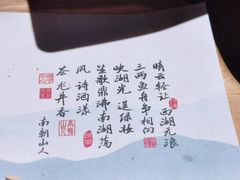 晴云轻让西湖无浪
三两鱼舟争相向
映湖光逞绿妆
笙歌鼎沸南湖荡
风诗酒漾
茶龙井香
南朝山人